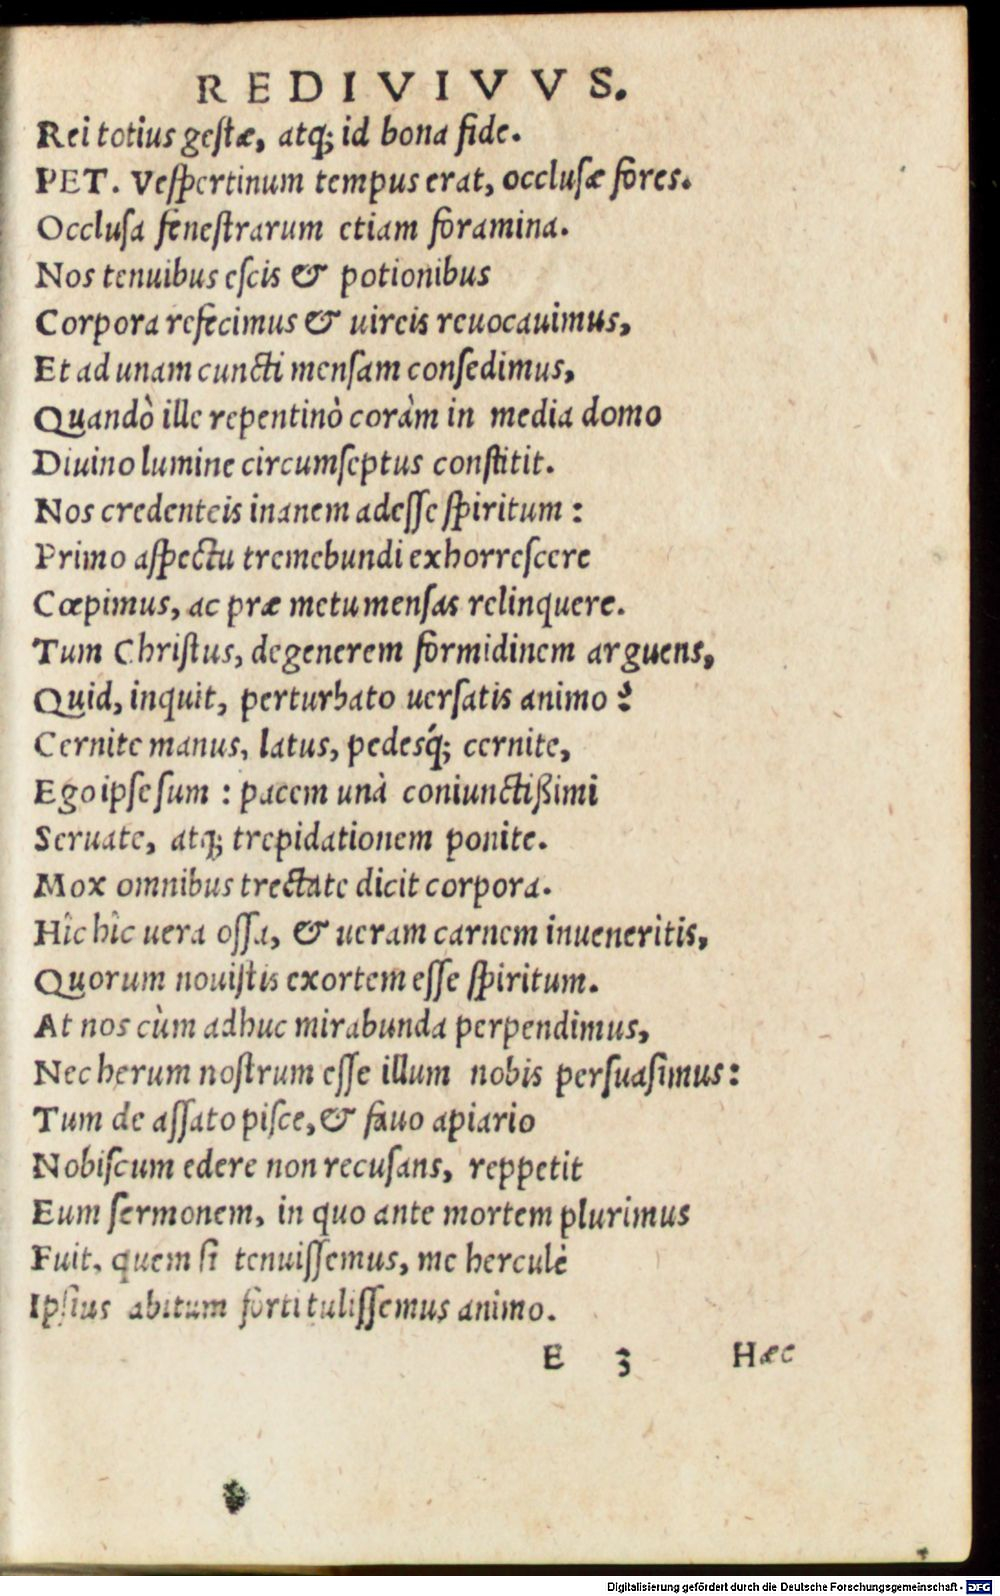 REDIVIVVS.
Rei totius gestæ, atq; id bona fide.
PET. Vespertinum tempus erat, occlusæ fores.
Occlusa fenestrarum etiam foramina.
Nos tenuibus escis & potionibus
Corpora refecimus & uireis reuocauimus,
Et ad unam cuncti mensam consedimus,
Quandò ille repentinò coràm in media domo
Diuino lumine circumseptus constitit.
Nos credenteis inanem adesse spiritum:
Primo aspectu tremebundi exhorrescere
Cœpimus, ac præ metu mensas relinquere.
Tum Christus, degenerem formidinem arguens,
Quid, inquit, perturbato uersatis animo?
Cernite manus, latus, pedesq́; cernite,
Ego ipse sum: pacem unà coniunctißimi
Seruate, atq; trepidationem ponite.
Mox omnibus trectate dicit corpora.
Hîc hîc uera ossa, & ueram carnem inueneritis,
Quorum nouistis exortem esse spiritum.
At nos cùm adhuc mirabunda perpendimus,
Nec herum nostrum esse illum nobis persuasimus:
Tum de assato pisce, & fauo apiario
Nobiscum edere non recusans, reppetit
Eum sermonem, in quo ante mortem plurimus
Fuit, quem si tenuissemus, me herculè
Ipsius abitum forti tulissemus animo.
E 3 Hæc
Digitalisierung gefördert durch die Deutsche Forschungsgemeinschaft - DFG